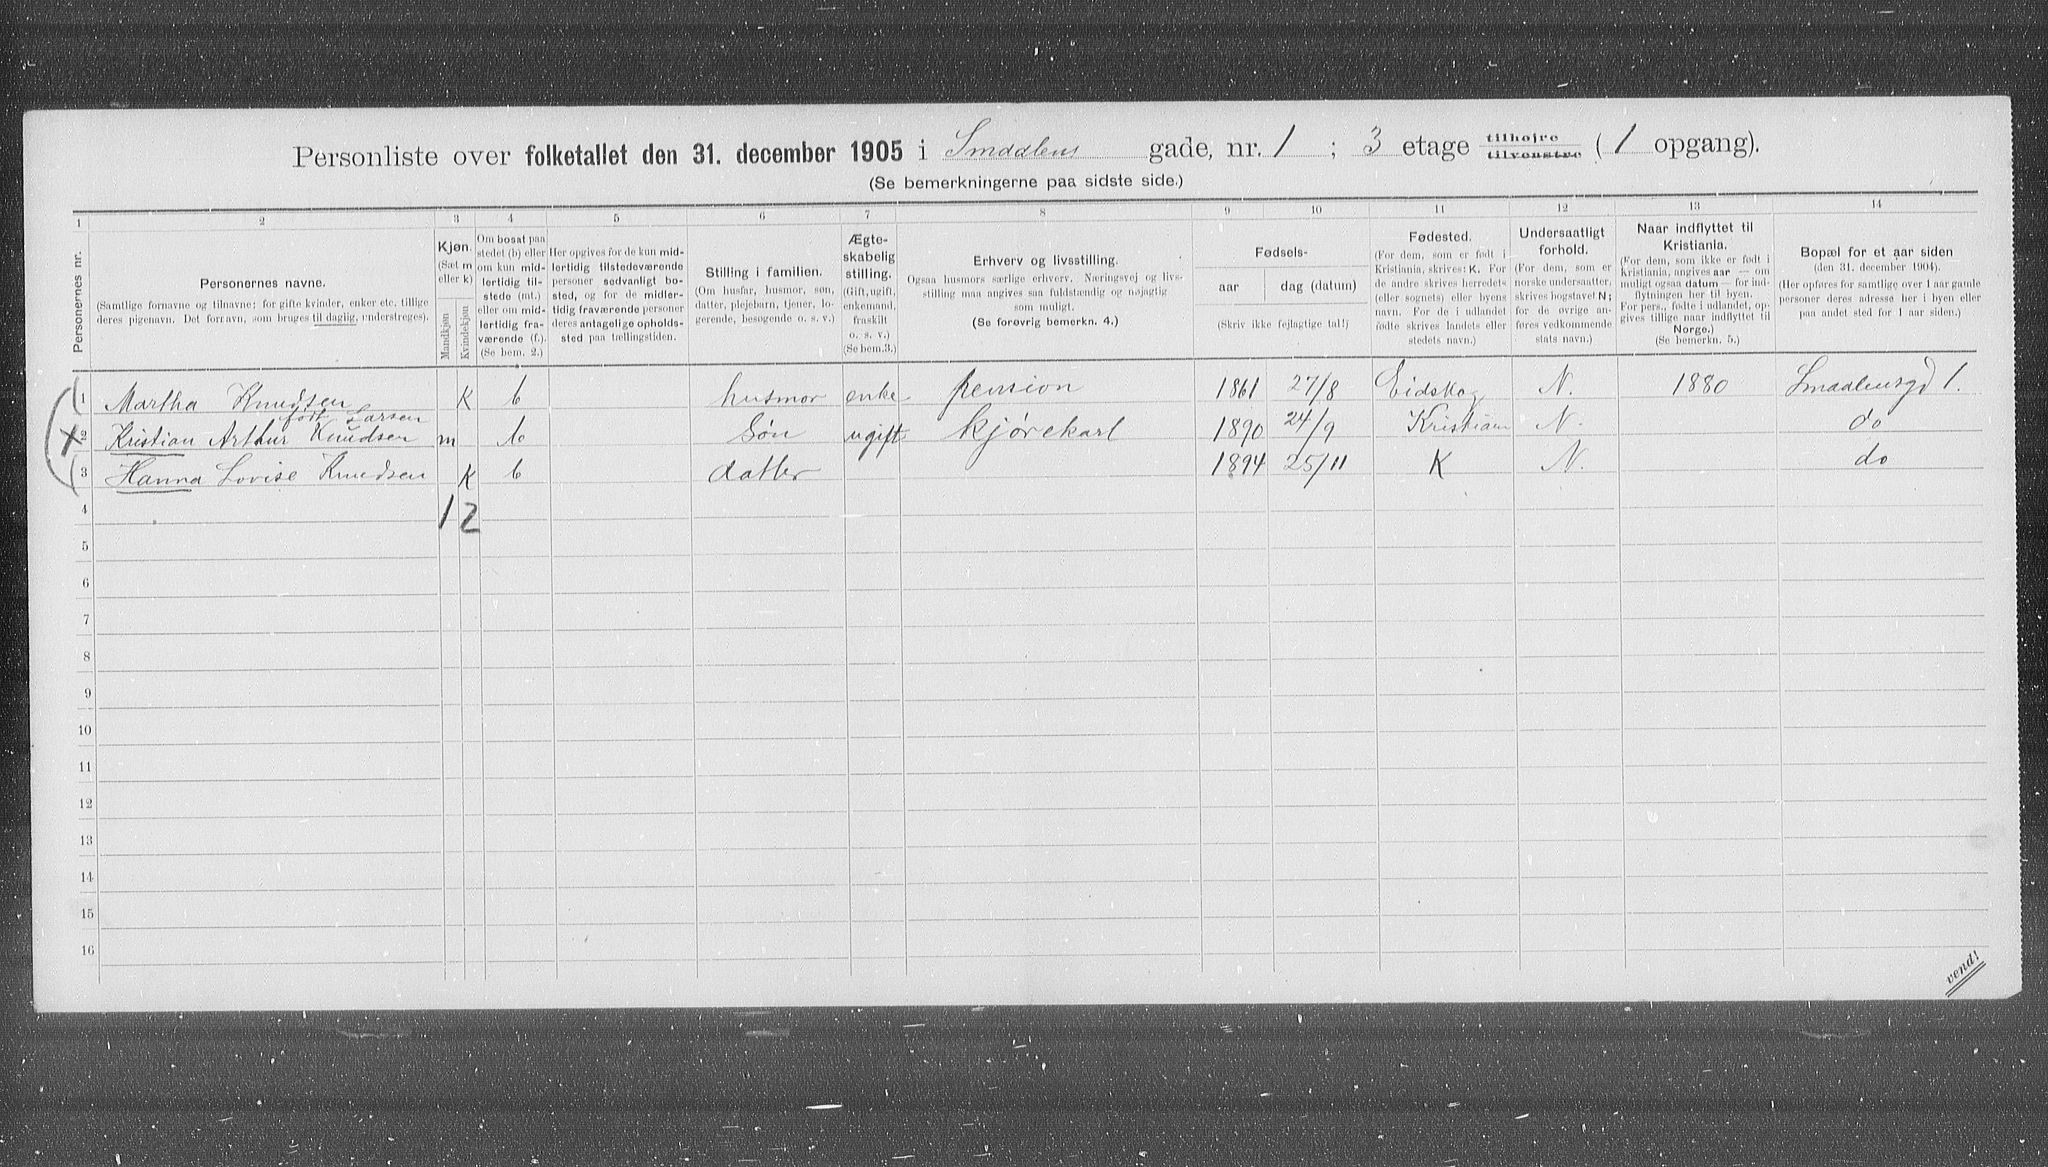 Personliste over folketallet den 31. december 1905 i Smaalens gade, nr. 1 ; 3 etage tilhøire tilvenstre ( 1 opgang).
(Se bemerkningerne paa sidste side.)
1 2 3 4 5 6 7 8 9 10 11 12 13 14
Personernes nr.
Personernes navne.
(Samtlige fornavne og tilnavne; for gifte kvinder, enker etc. tillige
deres pigenavn. Det fornavn, som bruges til daglig, understreges).
Kjøn.
(Sæt m
eller k)
Mandkjøn
Kvindekjøn
Om bosat paa
stedet (b) eller
om kun mid-
lertidig til-
stede (mt.)
eller om mid-
lertidig fra-
værende (f.).
(Se bem. 2.)
Her opgives for de kun mid-
lertidig tilstedeværende
personer sedvanligt bo-
sted, og for de midler-
tidig fraværende personer
deres antagelige opholds-
sted paa tællingstiden.
Stilling i familien.
(Om husfar, husmor, søn,
datter, plejebarn, tjener, lo-
gerende, besøgende o. s. v.)
Ægte-
skabelig
stilling.
(Gift, ugift,
enkemand,
fraskilt
o. s. v.)
(Se bem.3.)
Erhverv og livsstilling.
Ogsaa husmors særlige erhverv. Næringsvej og livs-
stilling maa angives saa fuldstændig og nøjagtig
som muligt.
(Se forøvrig bemerkn. 4.)
Fødsels-
aar
dag (datum)
(Skriv ikke fejlagtige tal!)
Fødested.
(For dem, som er født i
Kristiania, skrives: K. For
de andre skrives herredets
(eller sognets) eller byens
navn. For de i udlandet
fødte skrives landets eller
stedets navn.)
Undersaatligt
forhold.
(For dem, som er
norske undersaatter,
skrives bogstavet N;
for de øvrige an-
føres vedkommende
stats navn.)
Naar indflyttet til
Kristiania.
(For dem, som ikke er født i
Kristiania, angives aar — om
muligt ogsaa datum — for ind-
flytningen her til byen.
For pers., fødte i udlandet, op-
gives tillige naar indflyttet til
Norge.)
(Se bemerkn. 5.)
Bopæl for et aar siden
(den 31. december 1904).
(Her opføres for samtlige over 1 aar gamle
personer deres adresse her i byen eller
paa andet sted for 1 aar siden.)
1 Martha Knudsen født Larsen K b husmor enke pension 1861 27/8 Eidskog N. 1880 Smaalensgd 1.
2 Kristian Arthur Knudsen m b Søn ugift kjørekarl 1890 24/9 Kristiania N. do
3 Hanna Lovise Knudsen K b datter 1894 25/11 K N. do
4 1 2
5
6
7
8
9
10
11
12
13
14
15
16
vend!